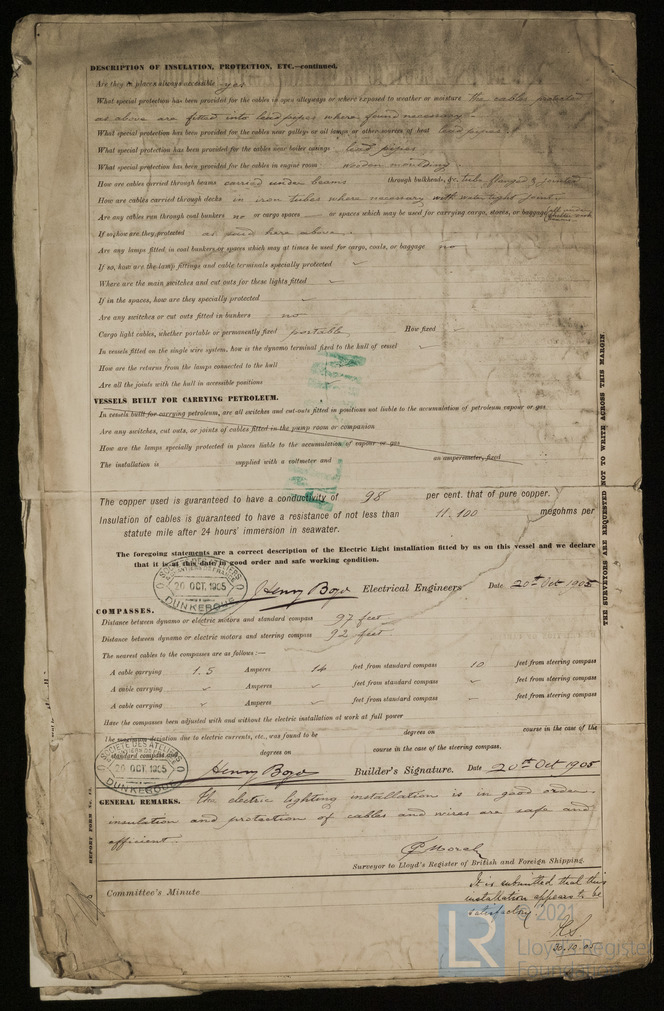 DESCRIPTION OF INSULATION, PROTECTION, ETC.—continued.
Are they in places always accessible yes
What special protection has been provided for the cables in open alleyways or where exposed to weather or moisture the cables protected
as above are fitted into lead pipes where found necessary
What special protection has been provided for the cables near galleys or oil lamps or other sources of heat lead pipes
What special protection has been provided for the cables near boiler casings lead pipes
What special protection has been provided for the cables in engine room wooden moulding
How are cables carried through beams carried under beams through bulkheads, &c. tube flanged & jointed
How are cables carried through decks in iron tubes where necessary with water tight joints
Are any cables run through coal bunkers no or cargo spaces or spaces which may be used for carrying cargo, stores, or baggage
If so, how are they protected as said here above
Are any lamps fitted in coal bunkers or spaces which may at times be used for cargo, coals, or baggage no
If so, how are the lamp fittings and cable terminals specially protected
Where are the main switches and cut outs for these lights fitted
If in the spaces, how are they specially protected
Are any switches or cut outs fitted in bunkers no
Cargo light cables, whether portable or permanently fixed portable How fixed
In vessels fitted on the single wire system, how is the dynamo terminal fixed to the hull of vessel
How are the returns from the lamps connected to the hull
Are all the joints with the hull in accessible positions
VESSELS BUILT FOR CARRYING PETROLEUM.
In vessels built for carrying petroleum, are all switches and cut-outs fitted in positions not liable to the accumulation of petroleum vapour or gas
Are any switches, cut outs, or joints of cables fitted in the pump room or companion
How are the lamps specially protected in places liable to the accumulation of vapour or gas
The installation is supplied with a voltmeter and an amperemeter, fixed
The copper used is guaranteed to have a conductivity of 98 per cent. that of pure copper.
Insulation of cables is guaranteed to have a resistance of not less than 11.100 megohms per
statute mile after 24 hours' immersion in seawater.
The foregoing statements are a correct description of the Electric Light installation fitted by us on this vessel and we declare
that it is at this date in good order and safe working condition.
20 OCT. 1905
DUNKERQUE
Henry Boyd Electrical Engineers Date 20th Oct 1905
COMPASSES.
Distance between dynamo or electric motors and standard compass 97 feet
Distance between dynamo or electric motors and steering compass 92 feet
The nearest cables to the compasses are as follows:—
A cable carrying 1.5 Amperes 14 feet from standard compass 10 feet from steering compass
A cable carrying Amperes feet from standard compass feet from steering compass
A cable carrying Amperes feet from standard compass feet from steering compass
Have the compasses been adjusted with and without the electric installation at work at full power
The maximum deviation due to electric currents, etc., was found to be degrees on course in the case of the
standard compass and degrees on course in the case of the steering compass.
SOCIETE DES ATELIERS
20 OCT. 1905
DUNKERQUE
Henry Boyd Builder's Signature. Date 20th Oct 1905
GENERAL REMARKS. The electric lighting installation is in good order
insulation and protection of cables and wires are safe and
efficient
Surveyor to Lloyd's Register of British and Foreign Shipping.
Committee's Minute
It is submitted that this
installation appears to be
satisfactory.
THE SURVEYORS ARE REQUESTED NOT TO WRITE ACROSS THIS MARGIN.
© 2021
LR
Lloyd's Register
Foundation